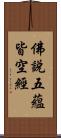 佛說五蘊
皆空經